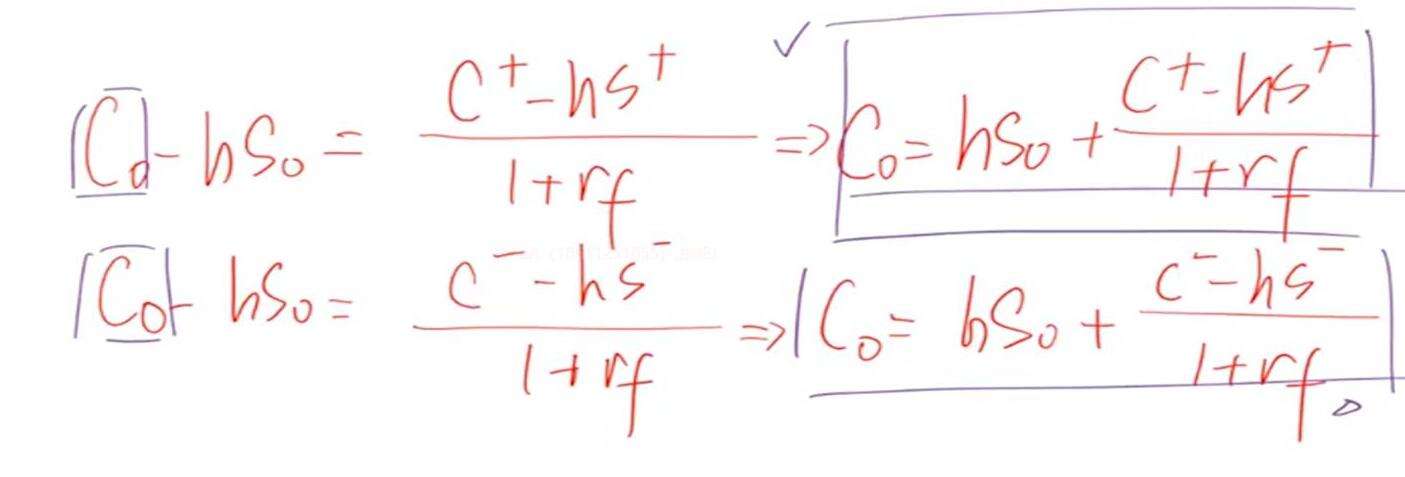 C₀ - hS₀ = (C⁺ - hS⁺) / (1 + rf) ⇒ C₀ = hS₀ + (C⁺ - hS⁺) / (1 + rf)
C₀ - hS₀ = (C⁻ - hS⁻) / (1 + rf) ⇒ C₀ = hS₀ + (C⁻ - hS⁻) / (1 + rf)